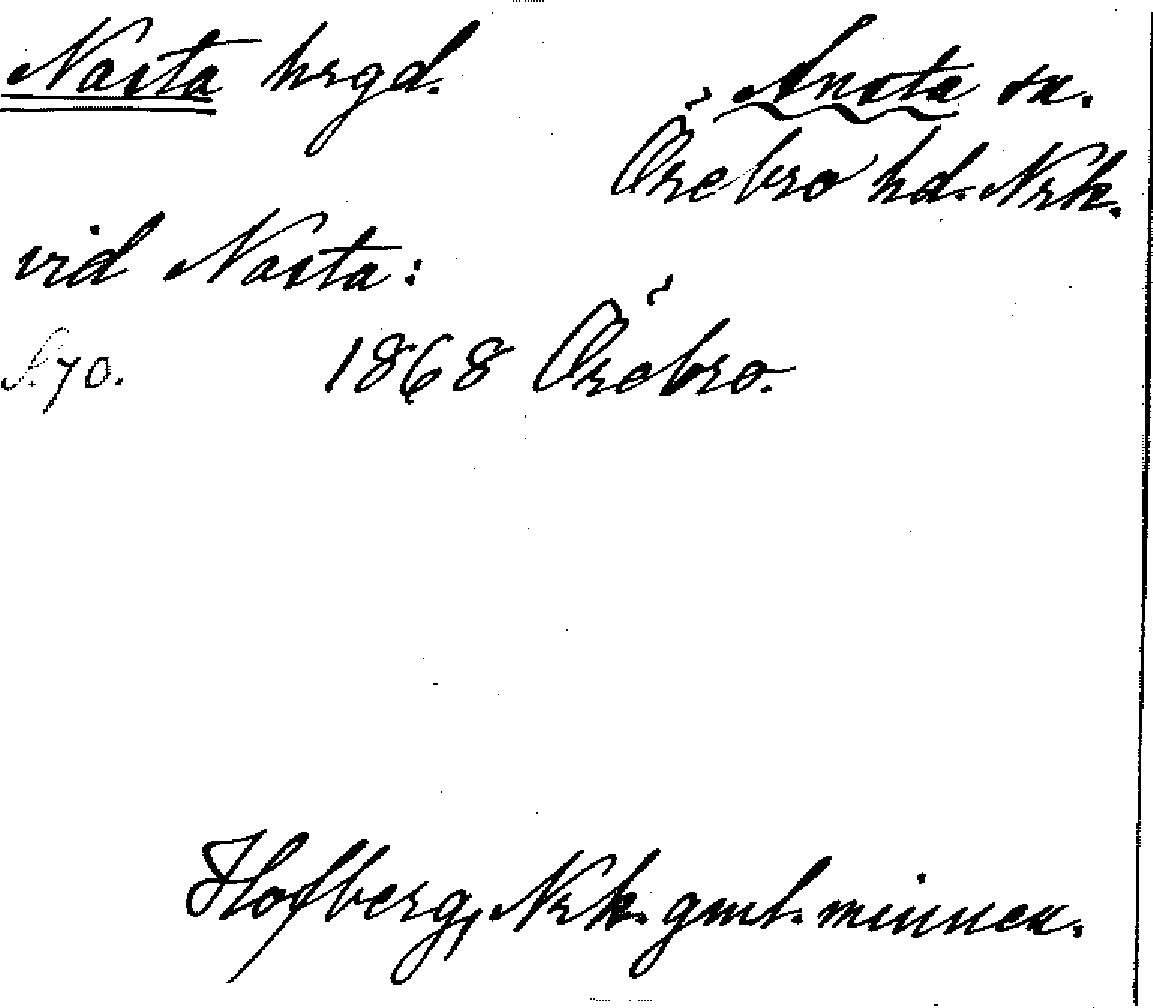 Nasta hrgd.
Ånsta sn.
Örebro hd. Nrk.
vid Nasta:
S. 70. 1868 Örebro.
Hofberg, Nrk. gml. minnen.